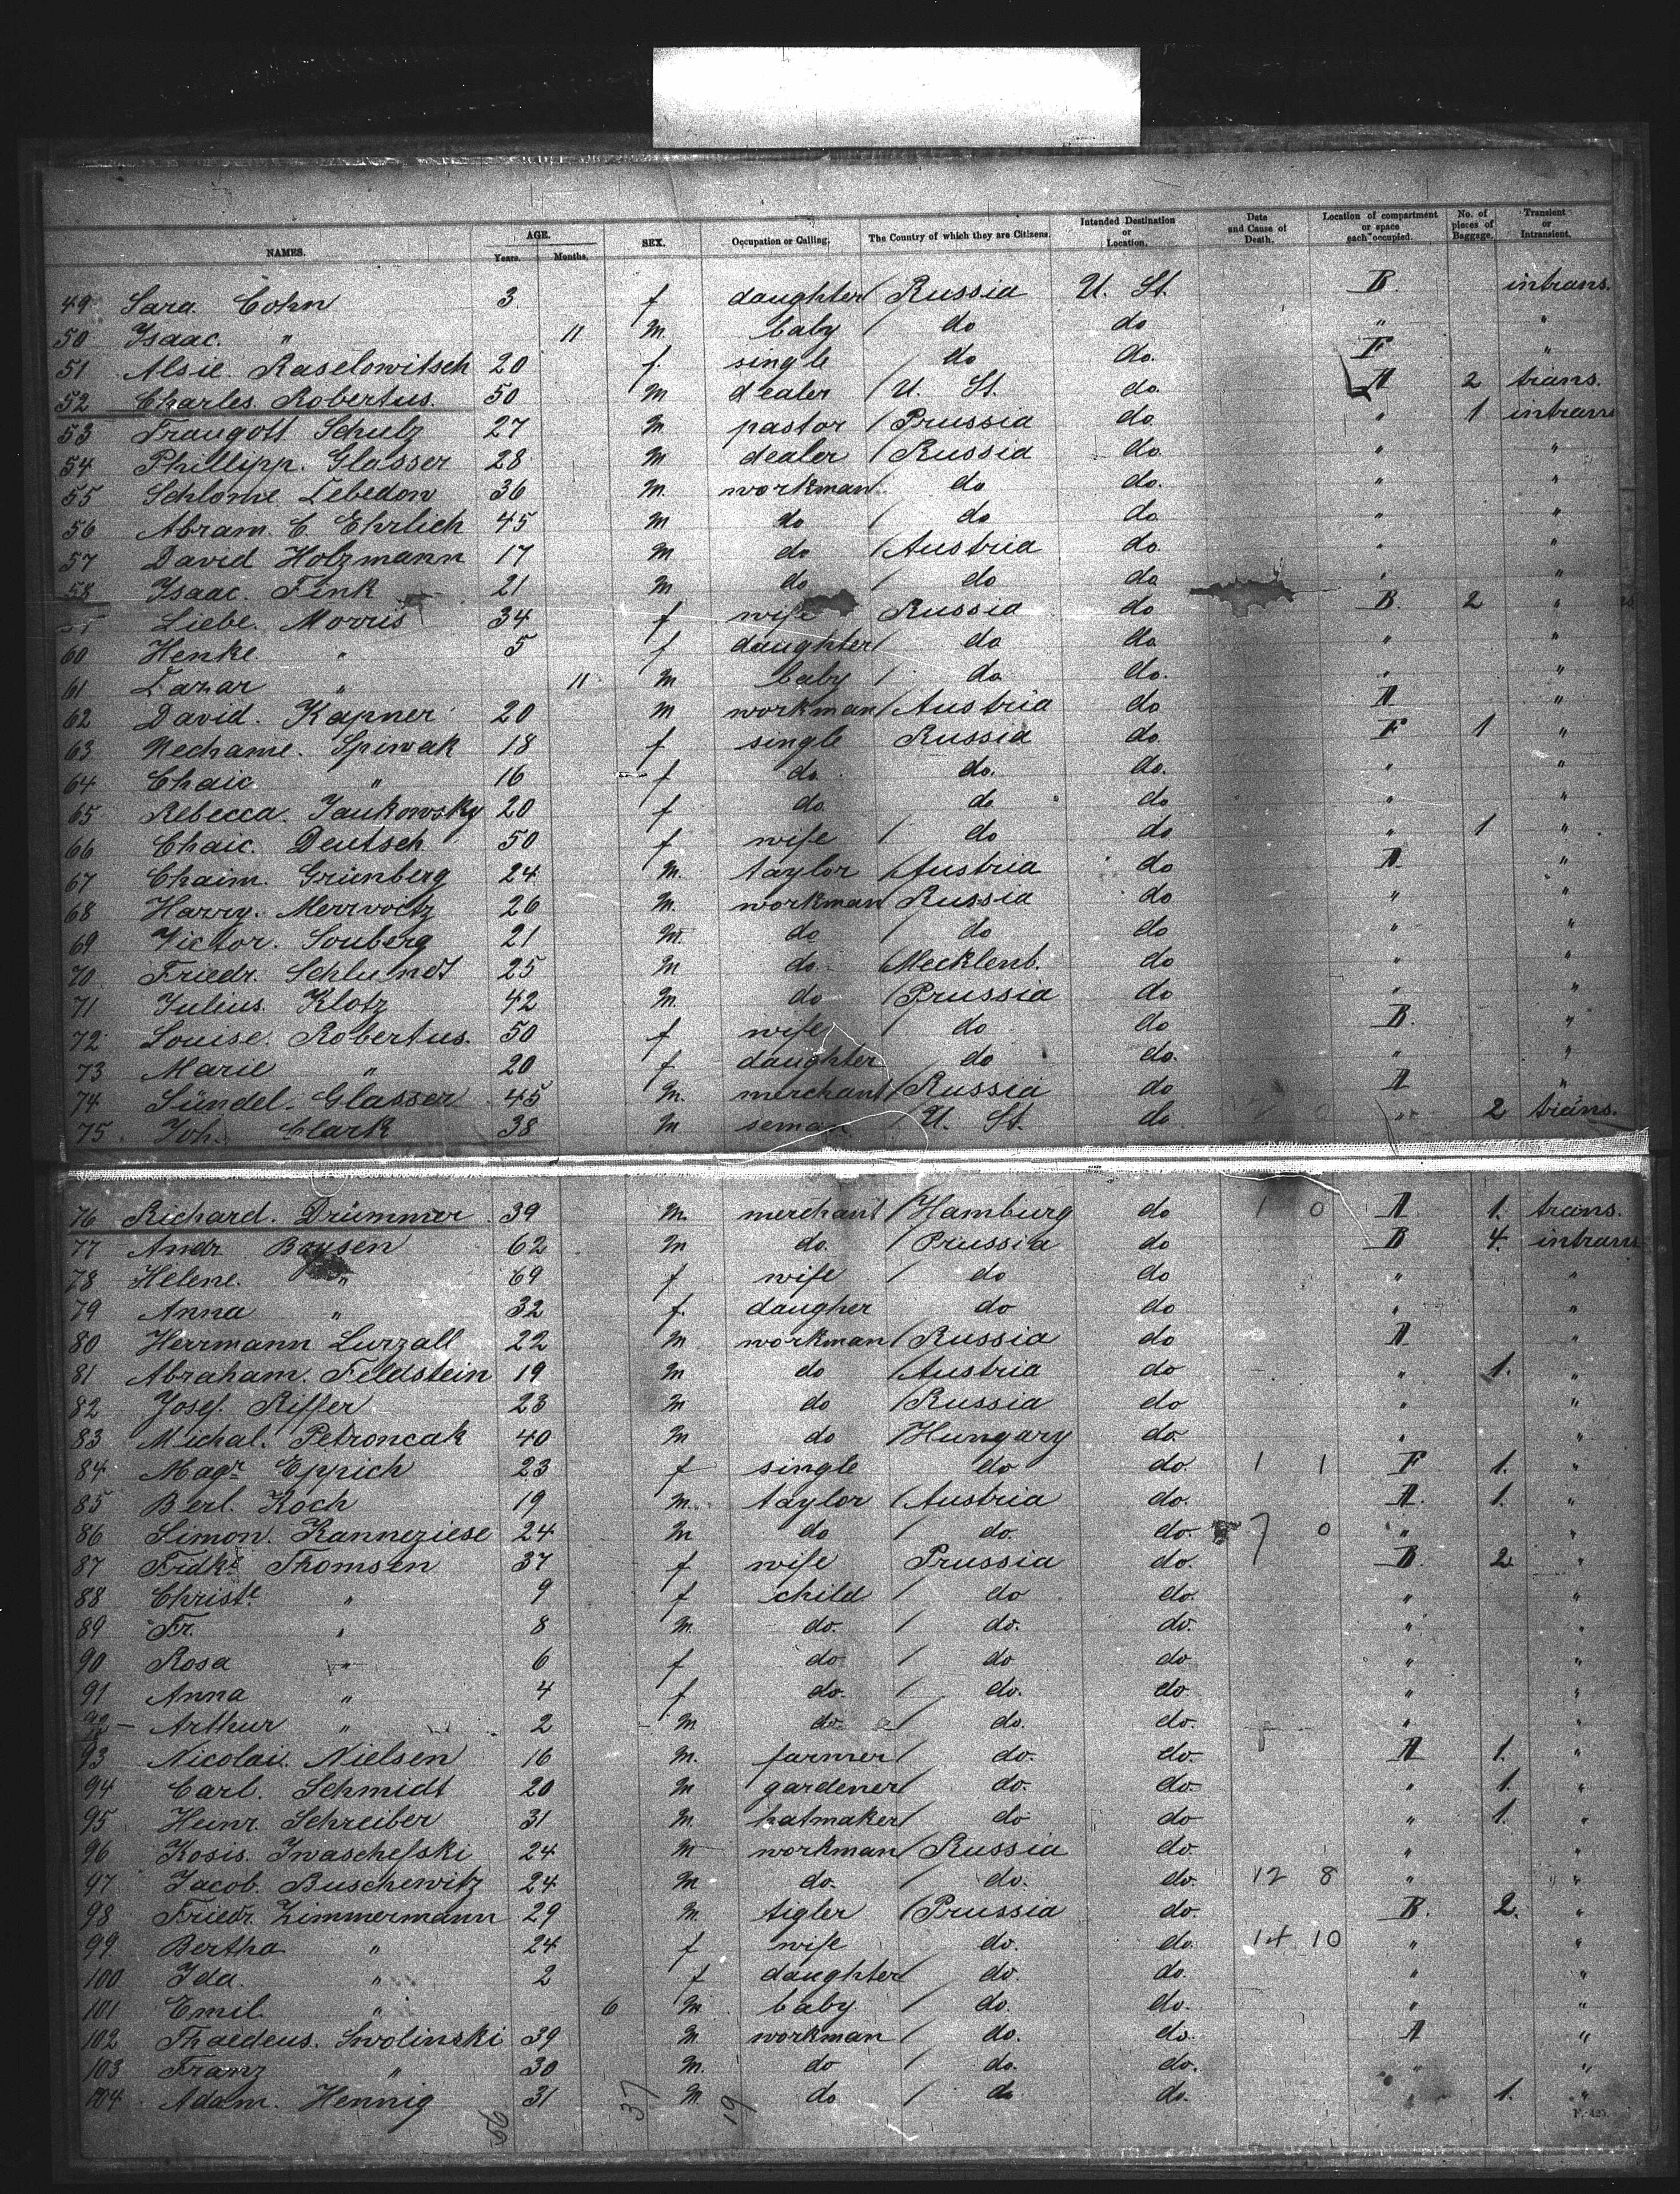 NAMES. AGE. Years. Months. SEX. Occupation or Calling. The Country of which they are Citizens. Intended Destination or Location. Date and Cause of Death. Location of compartment or space each occupied. No. of pieces of Baggage. Transient or Intransient.
49 Sara Cohn 3 f daughter Russia U. St. B. intrans.
50 Isaac. " 11 M. baby do do " "
51 Alsie. Raselowitsch 20 f. single do do. F "
52 Charles. Robertus. 50 M dealer U. St. do. A 2 trans.
53 Traugott Schulz 27 M pastor Prussia do. " 1 intrans
54 Phillipp. Glasser 28 M dealer Russia do. " "
55 Schlome Lebedon 36 M. workman do do. " "
56 Abram. C. Ehrlich 45 M do do do " "
57 David Holzmann 17 M do Austria do. " "
58 Isaac. Fink 21 M do do do " "
Liebe. Morris 34 f wife Russia do B 2 "
60 Henke. " 5 f daughter do do " "
61 Lazar " 11 M baby do do. " "
62 David. Kapner 20 M workman Austria do A "
63 Nechame. Spiwak 18 f single Russia do. F 1 "
64 Chaie " 16 f do. do. do. " "
65 Rebecca. Jankowsky 20 f do. do do " "
66 Chaie. Deutsch. 50 f wife do do " 1 "
67 Chaim. Grünberg 24 M. taylor Austria do A. "
68 Harry. Merrvoitz 26 M. workman Russia do " "
69 Victor. Souberg 21 M. do do do " "
70 Friedr. Schlundt 25 M do. Mecklenb. do " "
71 Julius. Klotz 42 M. do Prussia do " "
72 Louise. Robertus. 50 f wife do do B. "
73 Marie " 20 f daughter do do. " "
74 Sündel. Glasser 45 M. merchant Russia do A "
75. Joh. Clark 38 M seman U. St. do " 2 trans.
76 Richard. Drümmer 39 M. merchant Hamburg do 1 0 A. 1. trans.
77 Andr. Boysen 62 M do. Prussia do B 4. intrans
78 Helene. " 69 f wife do do " "
79 Anna " 32 f. daugher do do " "
80 Herrmann Lurzall 22 M workman Russia do A "
81 Abraham. Feldstein 19 M do Austria do " 1. "
82 Josef. Riffer 23 M do Russia do " "
83 Michal. Petroncak 40 M do Hungary do. " "
84 Magr. Eppich 23 f single do do. 1 1 F 1. "
85 Berl. Koch 19 M. taylor Austria do. A. 1. "
86 Simon. Kanneziese 24 M do do. do. 7 0 " "
87 Fridke Thomsen 37 f wife Prussia do. B. 2. "
88 Christe. " 9 f child do do. " "
89 Fr. " 8 M. do. do. do. " "
90 Rosa " 6 f do do do " "
91 Anna " 4 f do. do. do " "
92 Arthur " 2 M do do. do. " "
93 Nicolai. Nielsen 16 M. farmer do. do. A 1. "
94 Carl. Schmidt 20 M gardener do. do. " 1. "
95 Heinr. Schreiber 31 M. hatmaker do do " 1. "
96 Kosis. Iwaschefski 24 M workman Russia do. " "
97 Jacob. Buschewitz 24 M do. do. do. 12 8 " "
98 Friedr. Zimmermann 29 M. tigler Prussia do. B. 2. "
99 Bertha " 24 f wife do. do 14 10 " "
100 Ida. " 2 f daughter do. do. " "
101 Emil. " 6 M baby do. do. " "
102 Thaedeus. Swolinski 39 M. workman do. do. A "
103 Franz " 30 M. do do. do. " "
104 Adam. Hennig 31 M. do do do. " 1. "
56 37 19